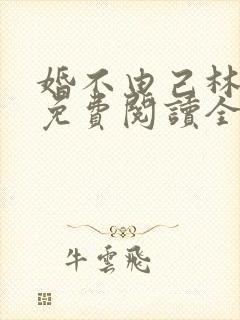 婚不由己林
免費閱讀全
牛雲飛